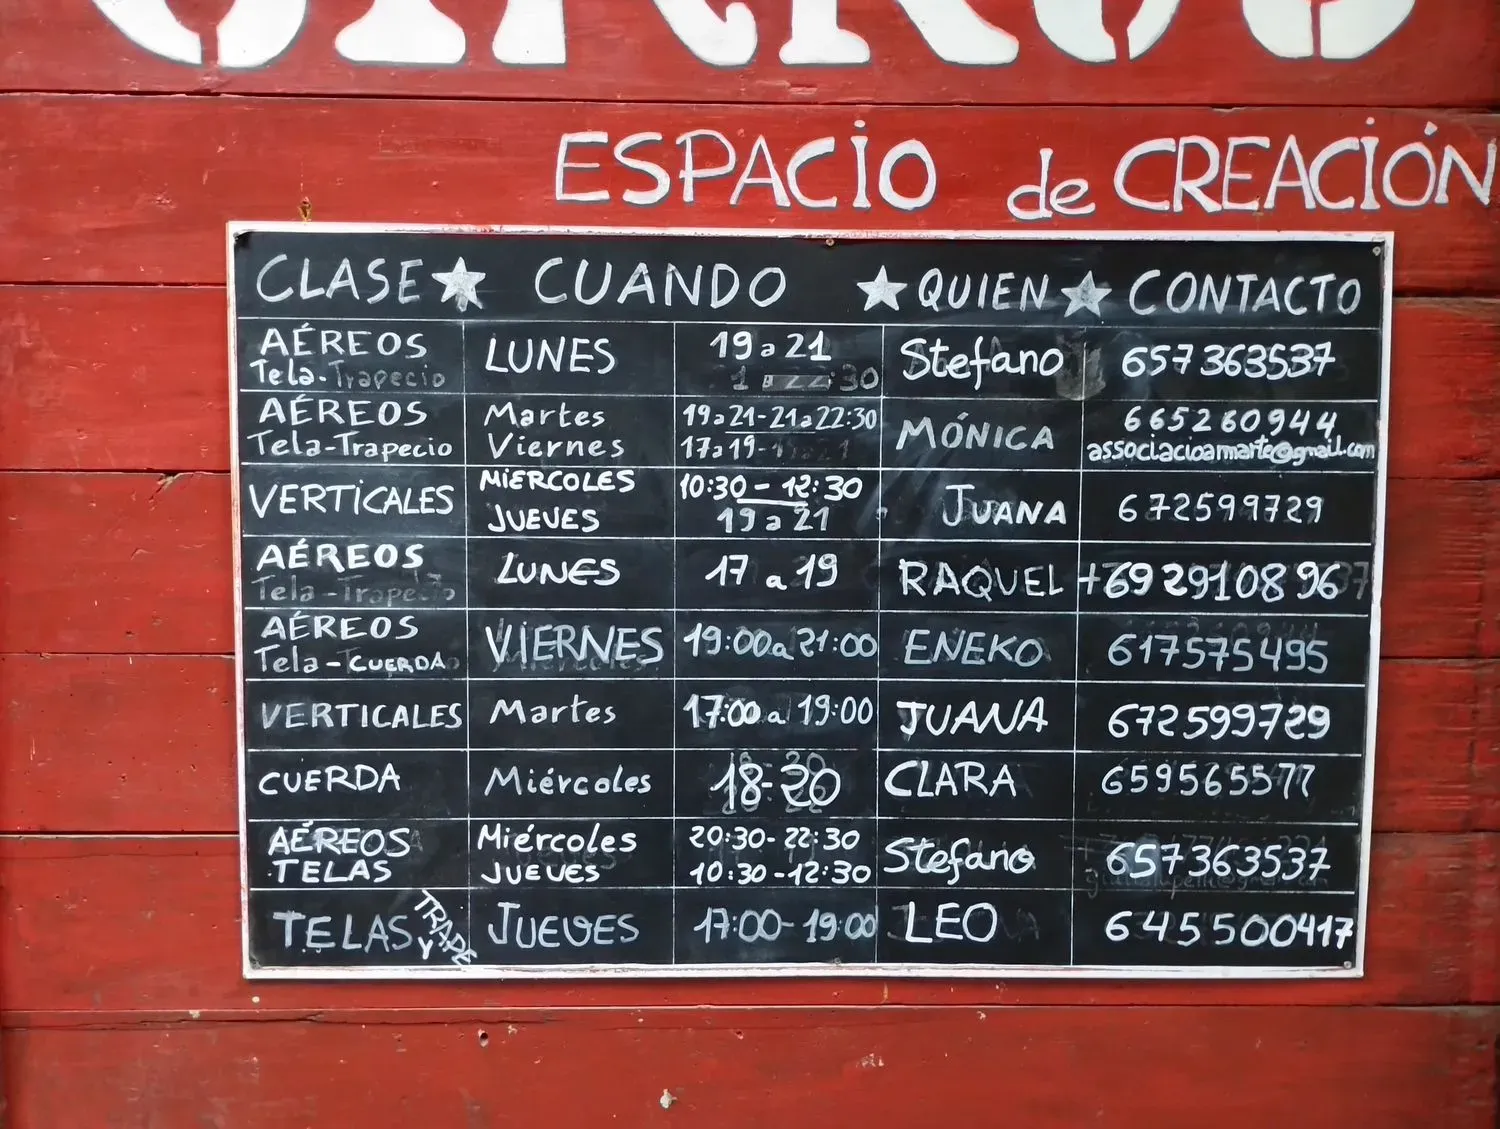 ESPACIO de CREACIÓN
CLASE ★ CUANDO ★ QUIEN ★ CONTACTO
AÉREOS LUNES 19 a 21 Stefano 657363537
Tela-Trapecio 22:30
AÉREOS Martes 19a21-21a22:30 MÓNICA 665260944
Tela-Trapecio Viernes 17a19- associacioamarte@gmail.com
VERTICALES MIÉRCOLES 10:30 - 12:30 JUANA 672599729
JUEVES 19 a 21
AÉREOS LUNES 17 a 19 RAQUEL +692910896
Tela-Trapecio
AÉREOS VIERNES 19:00a 21:00 ENEKO 617575495
Tela-CUERDA
VERTICALES Martes 17:00 a 19:00 JUANA 672599729
CUERDA Miércoles 18-20 CLARA 659565577
AÉREOS Miércoles 20:30-22:30 Stefano 657363537
TELAS JUEVES 10:30-12:30
TELAS Y TRAPE JUEVES 17:00-19:00 LEO 645500417